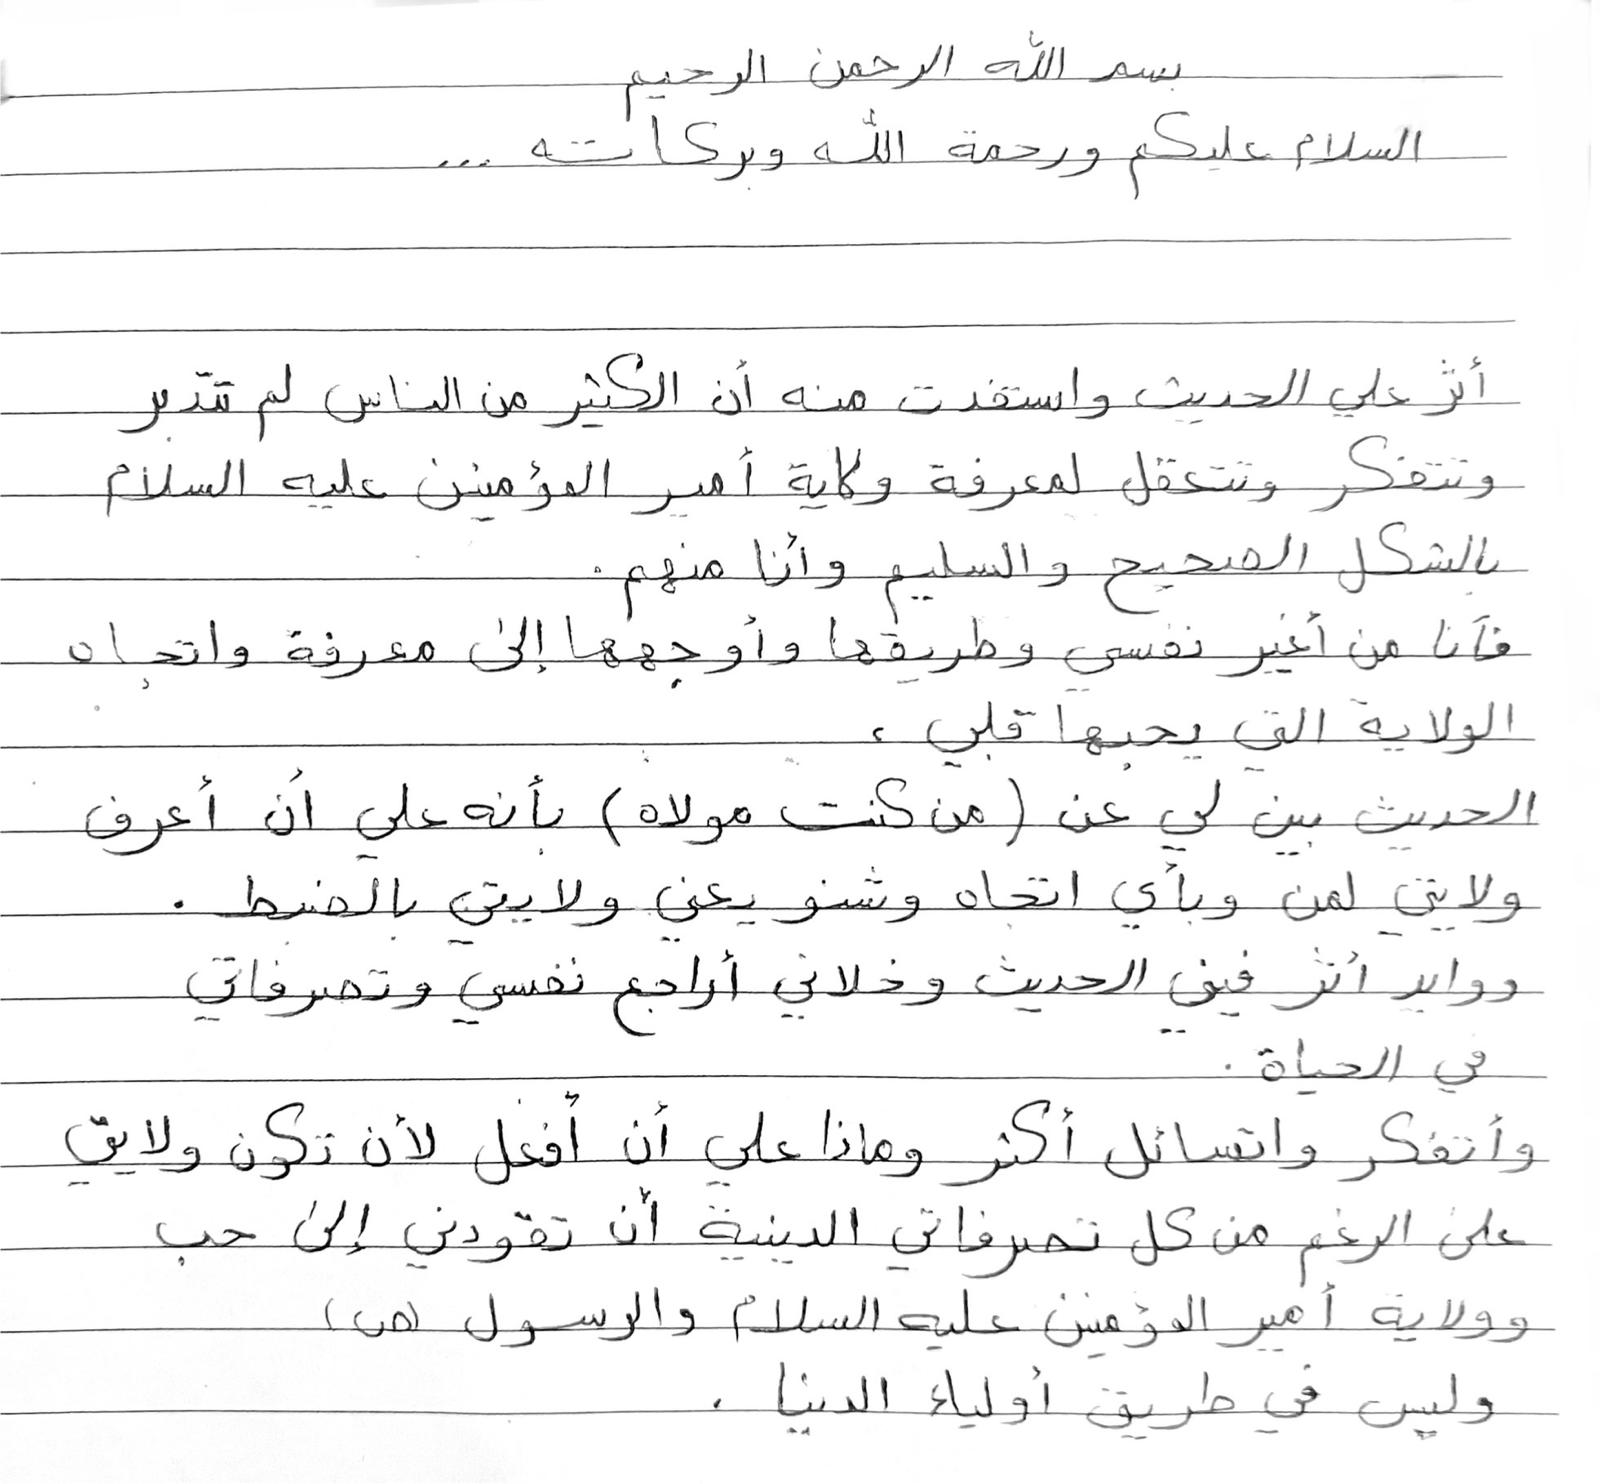 بسم الله الرحمن الرحيم
السلام عليكم ورحمة الله وبركاته ...
أثر علي الحديث واستفدت منه أن الكثير من الناس لم تتدبر
وتتفكر وتتعقل لمعرفة ولاية أمير المؤمنين عليه السلام
بالشكل الصحيح والسليم وأنا منهم .
فأنا من أغير نفسي وطريقها وأوجهها إلى معرفة واتجاه
الولاية التي يحبها قلبي ،
الحديث بين لي عن (من كنت مولاه) بأنه علي أن أعرف
ولايتي لمن وبأي اتجاه وشنو يعني ولايتي بالضبط .
ووايد أثر فيني الحديث وخلاني أراجع نفسي وتصرفاتي
في الحياة .
وأتفكر واتسائل أكثر وماذا علي أن أفعل لأن تكون ولايتي
على الرغم من كل تصرفاتي الدينية أن تقودني إلى حب
وولاية أمير المؤمنين عليه السلام والرسول (ص)
وليس في طريق أولياء الدنيا .